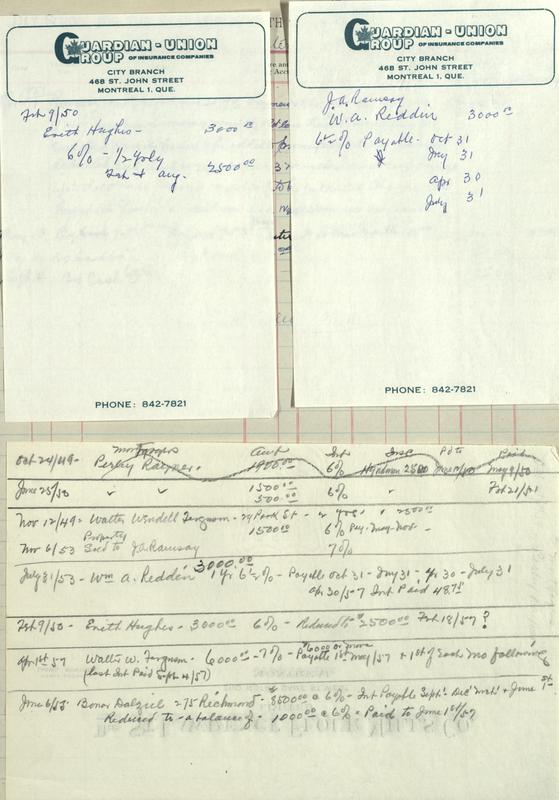 GUARDIAN - UNION
GROUP OF INSURANCE COMPANIES
CITY BRANCH
468 ST. JOHN STREET
MONTREAL 1, QUE.
Feb 9/50
Enith Hughes - 3000 00
6% - 1/2 yrly
Feb + Aug. 2500 00
PHONE: 842-7821
GUARDIAN - UNION
GROUP OF INSURANCE COMPANIES
CITY BRANCH
468 ST. JOHN STREET
MONTREAL 1, QUE.
J.A. Ramsay
W.A. Reddin 3000 00
6 1/2 % Payable - Oct 31
Jny 31
Apr 30
July 31
PHONE: 842-7821
Amt Int Insc Pd to
Oct 24/49 - Perley Raynor. 1900.00 6% Hyndman 2500 May 9/50
June 25/50 " " 1500 00 6% " Feb 21/51
500.00
Nov 12/49 = Walter Windell Ferguson - 24 Park St - 2 yrs 2500
Property 1500 00 6% Pay. May-Nov -
Nov 6/53 Sold to J.A. Ramsay 7%
July 31/53 - Wm A. Reddin 3000.00 1 yr 6 1/2 % - Payable Oct 31 - Jny 31 - Apr 30 - July 31
Apr 30/57 Int Paid 48.75
Feb 9/50 - Enith Hughes - 3000 00 6% - Reduced to $2500 00 Feb 18/57 ?
Apr 1st 57 Walter W. Ferguson - 6000 00 - 7% - $6000 or more Payable 1st May/57 + 1st of Each Mo following
(Last Int Paid Sept 4/57)
June 6/53 - Bonor Dalziel - 275 Richmond - $8500 00 @ 6% - Int Payable Sept. Dec. Mch. + June 1st
Reduced to a balance of - 1000 00 @ 6% - Paid to June 1st/57
The St. Lawrence Flour Mills Co.